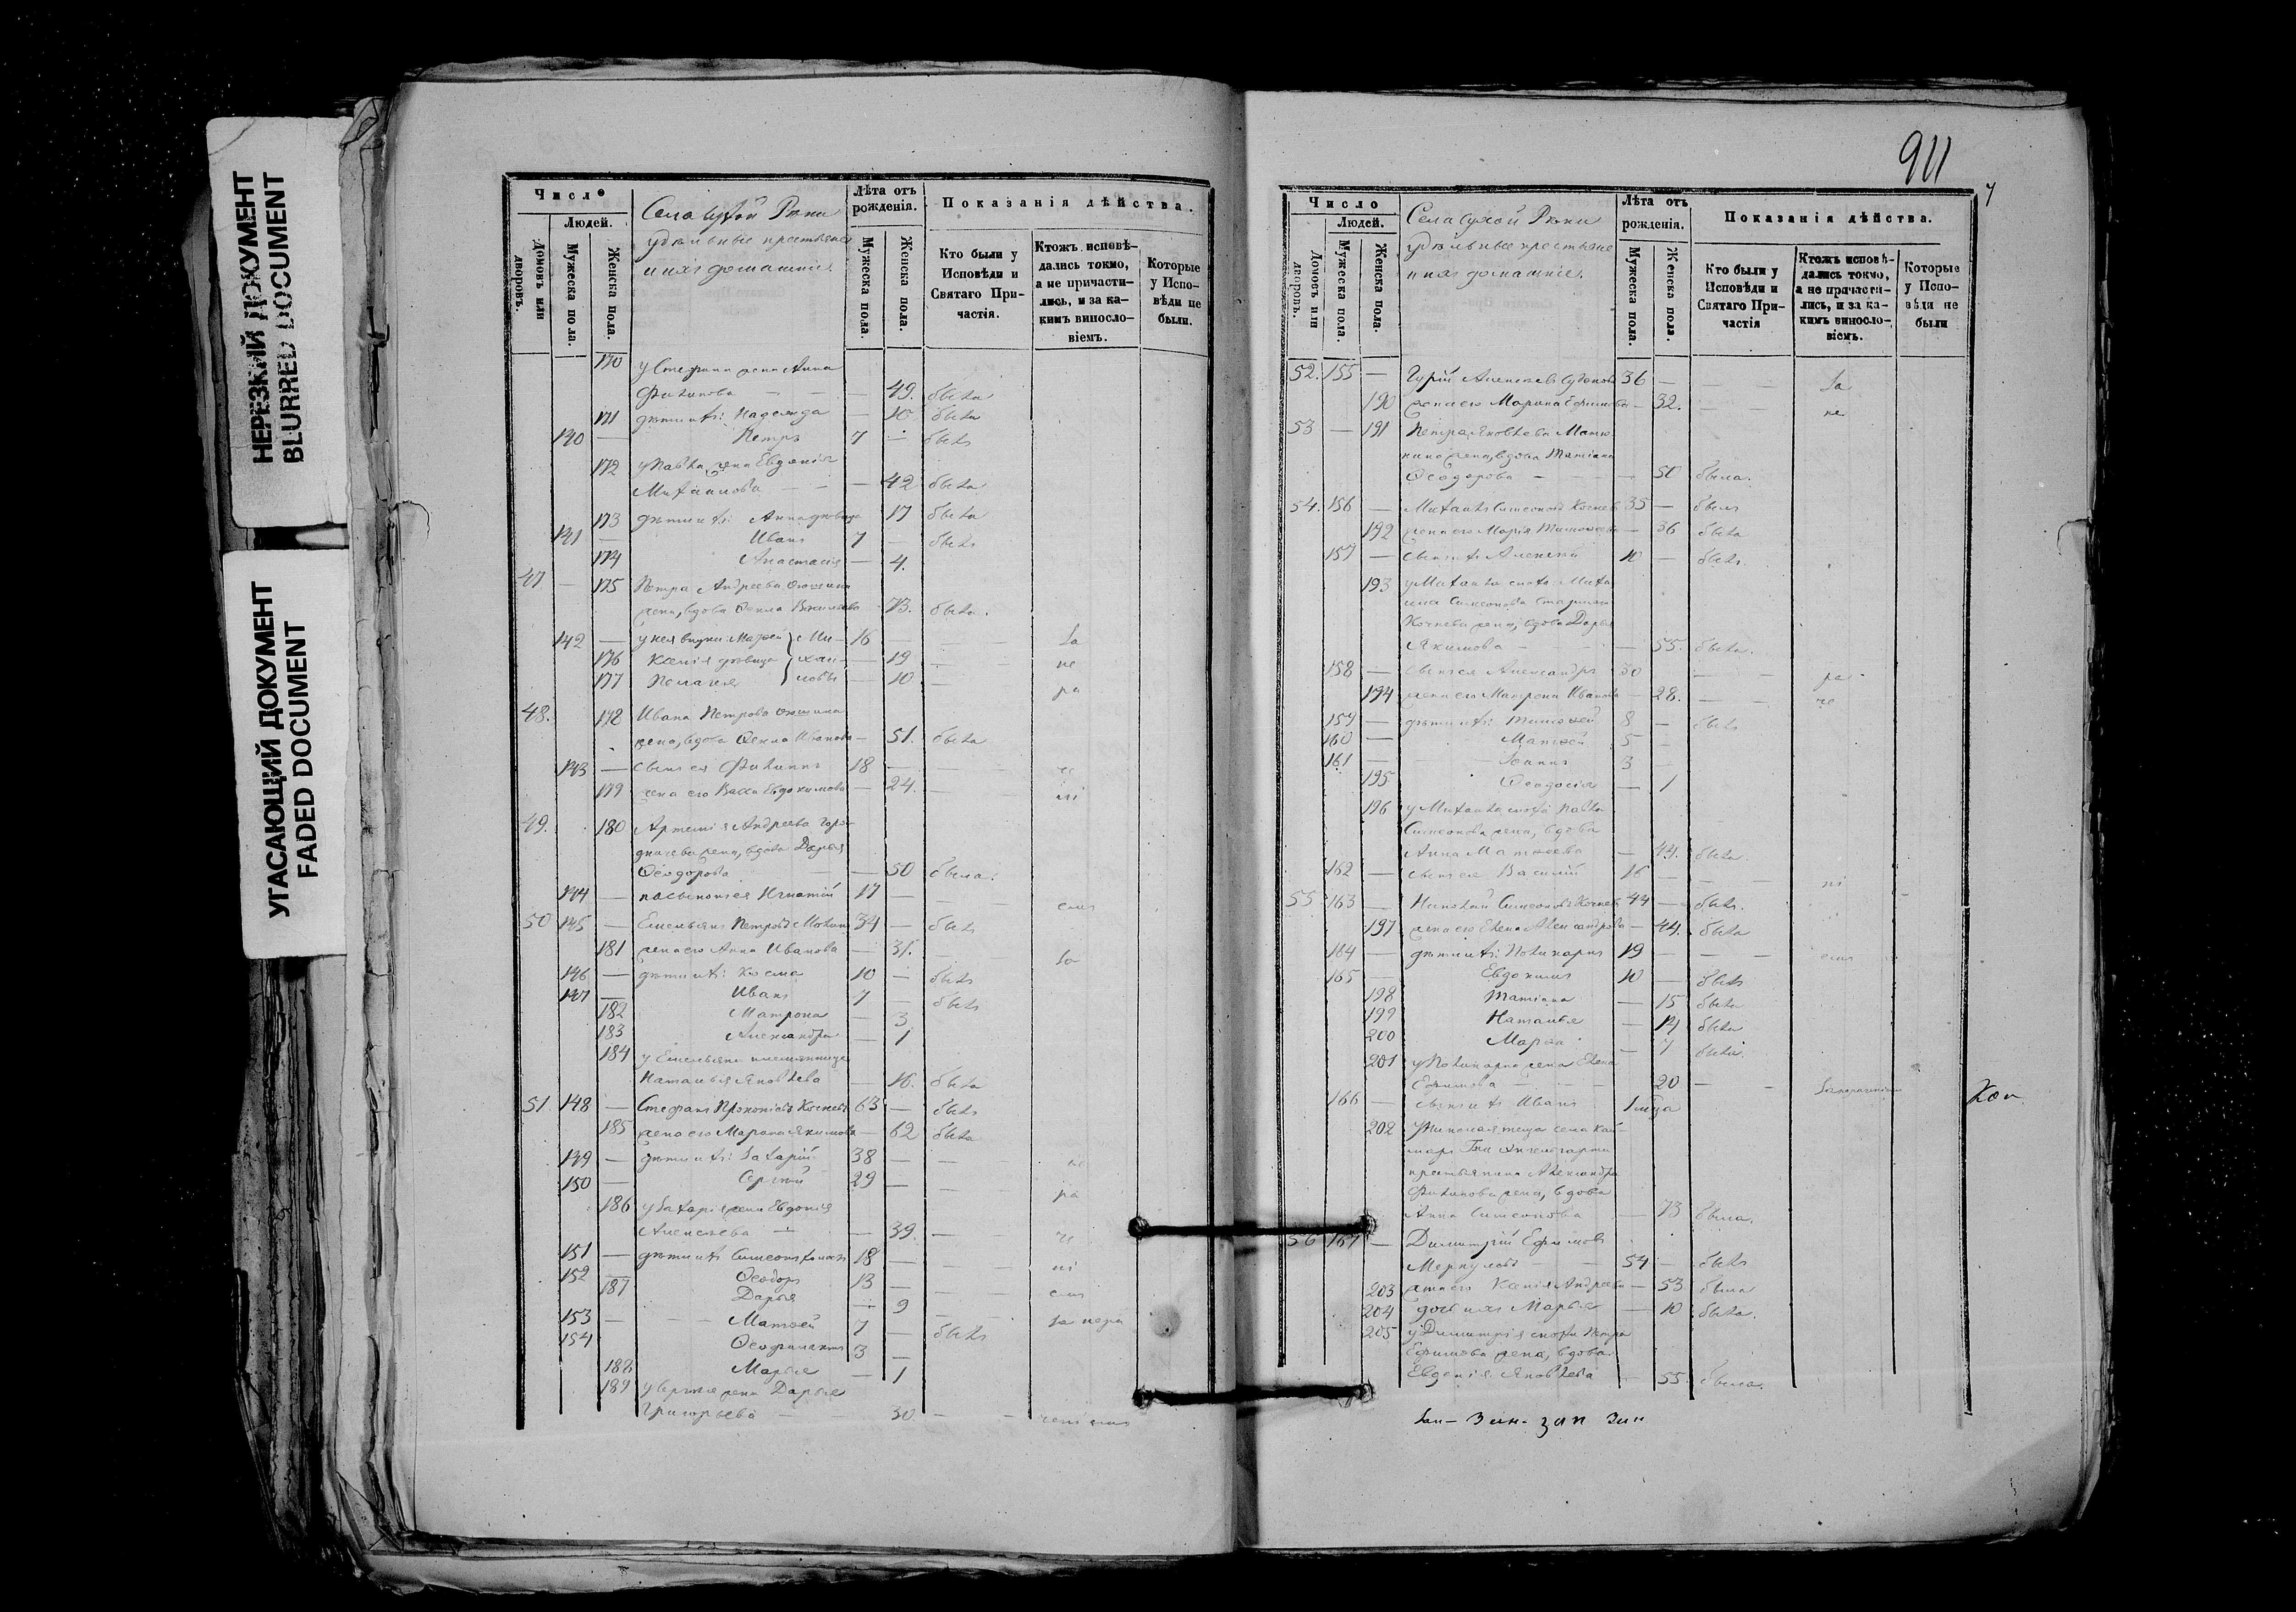 НЕРЕЗКИЙ ДОКУМЕНТ
BLURRED DOCUMENT
УГАСАЮЩИЙ ДОКУМЕНТ
FADED DOCUMENT
Число
Людей.
Домовъ или дворовъ.
Мужеска пола.
Женска пола.
Села Сухой Рѣки
удѣльные крестьяне
и ихъ домашніе.
Лѣта отъ рожденія.
Мужеска пола.
Женска пола.
Показанія дѣйства.
Кто были у Исповѣди и Святаго Причастія.
Ктожъ исповѣдались токмо, а не причастились, и за какимъ винословіемъ.
Которые у Исповѣди не были.
170 у Стефана жена Анна
Филипова — — 49. была
171 дѣти ихъ: Надежда — была
140 — Петръ 7 — былъ
172 у Павла жена Евдокія
Михаилова — — 42 была
173 дѣти ихъ: Анна дѣвица 17 была
141 — Иванъ 7 — былъ
174 Анастасія — 4.
47 — 175 Петра Андреева
жена, вдова Ѳекла 73. была.
142 — у нея внуки: 16 — — за
176 Ксенія дѣвица — 19 — не
177 Пелагея — 10 — ра
48. 178 Ивана Петрова
жена, вдова Ѳекла Иванова — 51. была
143 — сынъ ея Филиппъ 18 — — че
179 жена его Васса Евдокимова — 24. — ні
49. 180 Артемія Андреева
жена, вдова Дарья
Ѳеодорова — 50 была.
144 — пасынокъ ея Игнатій 17 — — емъ
50 145 — Емельянъ Петровъ 34 — былъ
181 жена его Анна Иванова — 31. — за
146 — дѣти ихъ: Косма 10 — былъ
147 — Иванъ 7 — былъ
182 Матрона — 3
183 Александра — 1
184 у Емельяна племянница
Наталья Яковлева — 16. была
51 148 — Стефанъ Прокопіевъ Кочневъ 63 — былъ
185 жена его Марина Якимова — 62 была
149 — дѣти ихъ: Захарій 38 — — не
150 — Сергій 29 — — ра
186 у Захарія жена Евдокія
Алексѣева — — 39. — че
151 — дѣти ихъ Симеонъ 18 — — ні
152 — Ѳеодоръ 13 — — емъ
187 Дарья — 9
153 — — Матѳей 7 — былъ
154 Ѳеофилактъ 3 —
188 Марья — 1
189 у Сергія жена Дарья
Григорьева — — 30 — — ченіемъ
911
7
Число
Людей.
Домовъ или дворовъ.
Мужеска пола.
Женска пола.
Села Сухой Рѣки
удѣльные крестьяне
и ихъ домашніе.
Лѣта отъ рожденія.
Мужеска пола.
Женска пола.
Показанія дѣйства.
Кто были у Исповѣди и Святаго Причастія
Ктожъ исповѣдались токмо, а не причастились, и за какимъ винословіемъ.
Которые у Исповѣди не были
52. 155 — Гурій Алексѣевъ 36 — — — за
190 жена его Марина Ефимова — 32. — — не
53 — 191 Петра Яковлева
жена, вдова Татіана
Ѳеодорова — — 50 была.
54. 156 — Михаилъ Симеоновъ Кочневъ 35 — былъ
192 жена его Марія Тимоѳеева — 36 была
157 — сынъ ихъ Алексѣй 10 — былъ.
193 у Михаила сноха
Симеонова
Кочнева жена, вдова Дарья
Якимова — — — 55. была.
158 — сынъ ея Александръ 30 — — ра
194 жена его Матрона Иванова — 28. — — че
159 — дѣти ихъ: Тимоѳей 8 — былъ
160 — Матѳей 5 —
161 — — Іоаннъ 3 —
195 Ѳеодосія — 1
196 у Михаила сноха Павла
Симеонова жена, вдова
Анна Матѳеева — 44. была.
162 — сынъ ея Василій 16 — — — ні
55 163 — Николай Симеоновъ Кочневъ 44 — былъ.
197 жена его Елена Александрова — 44. была
164 — дѣти ихъ: Поликарпъ 19 — — — емъ
165 — Евдокимъ 10 — былъ
198 Татіана — 15 была
199 Наталья — 14 была
200 Марѳа — 7 была.
201 у Поликарпа жена Елена
Ефимова — — — 20 — —
166 — сынъ ихъ Иванъ 1
202 у Николая теща села
крестьянина Александра
Филипова жена, вдова
Анна Симеонова — 73 была.
56 167 — Димитрій Ефимовъ
Меркуловъ — — 54 — былъ
203 жена его Ксенія Андреева — 53 была
204 дочь ихъ Марья — 10 была.
205 у Димитрія сноха Петра
Ефимова жена, вдова
Евдокія Яковлева — 55. была.